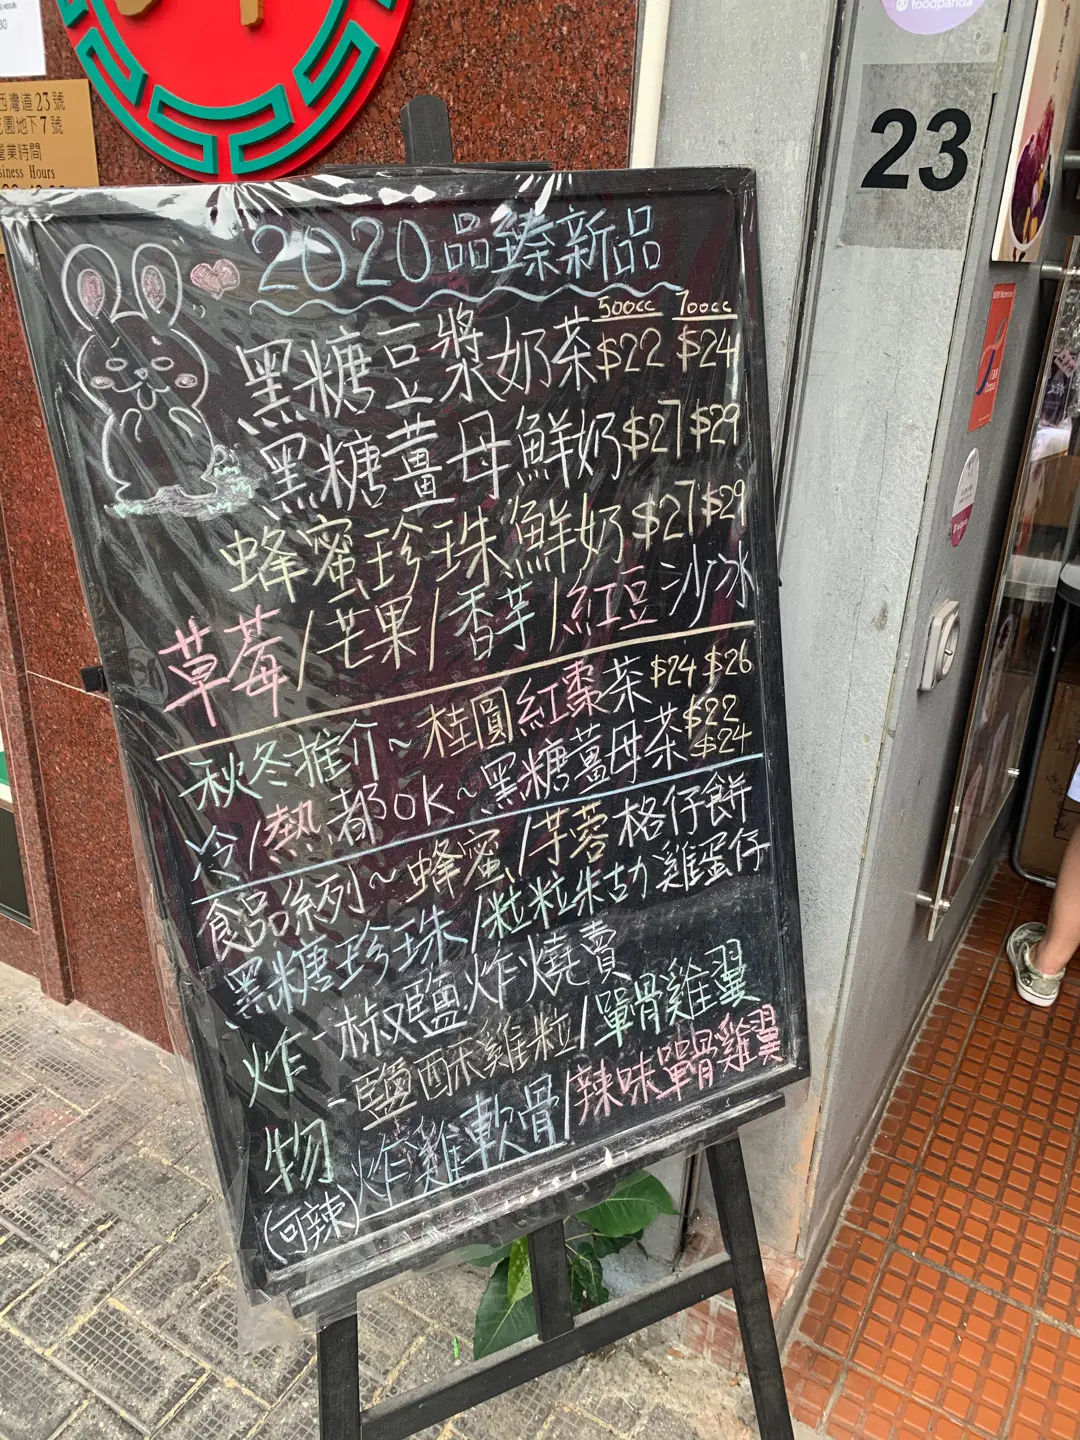 foodpanda
23
西灣道23號
花園地下7號
營業時間
siness Hours
2020品臻新品
500cc 700cc
黑糖豆漿奶茶$22 $24
黑糖薑母鮮奶$27 $29
蜂蜜珍珠鮮奶$27 $29
草莓/芒果/香芋/紅豆沙冰
秋冬推介~桂圓紅棗茶$24 $26
冷/熱都OK~黑糖薑母茶$22 $24
食品系列~蜂蜜/芋蓉格仔餅
黑糖珍珠/粒粒朱古力雞蛋仔
炸-椒鹽炸燒賣
-鹽酥雞粒/單骨雞翼
物 炸雞軟骨/辣味單骨雞翼
(可辣)